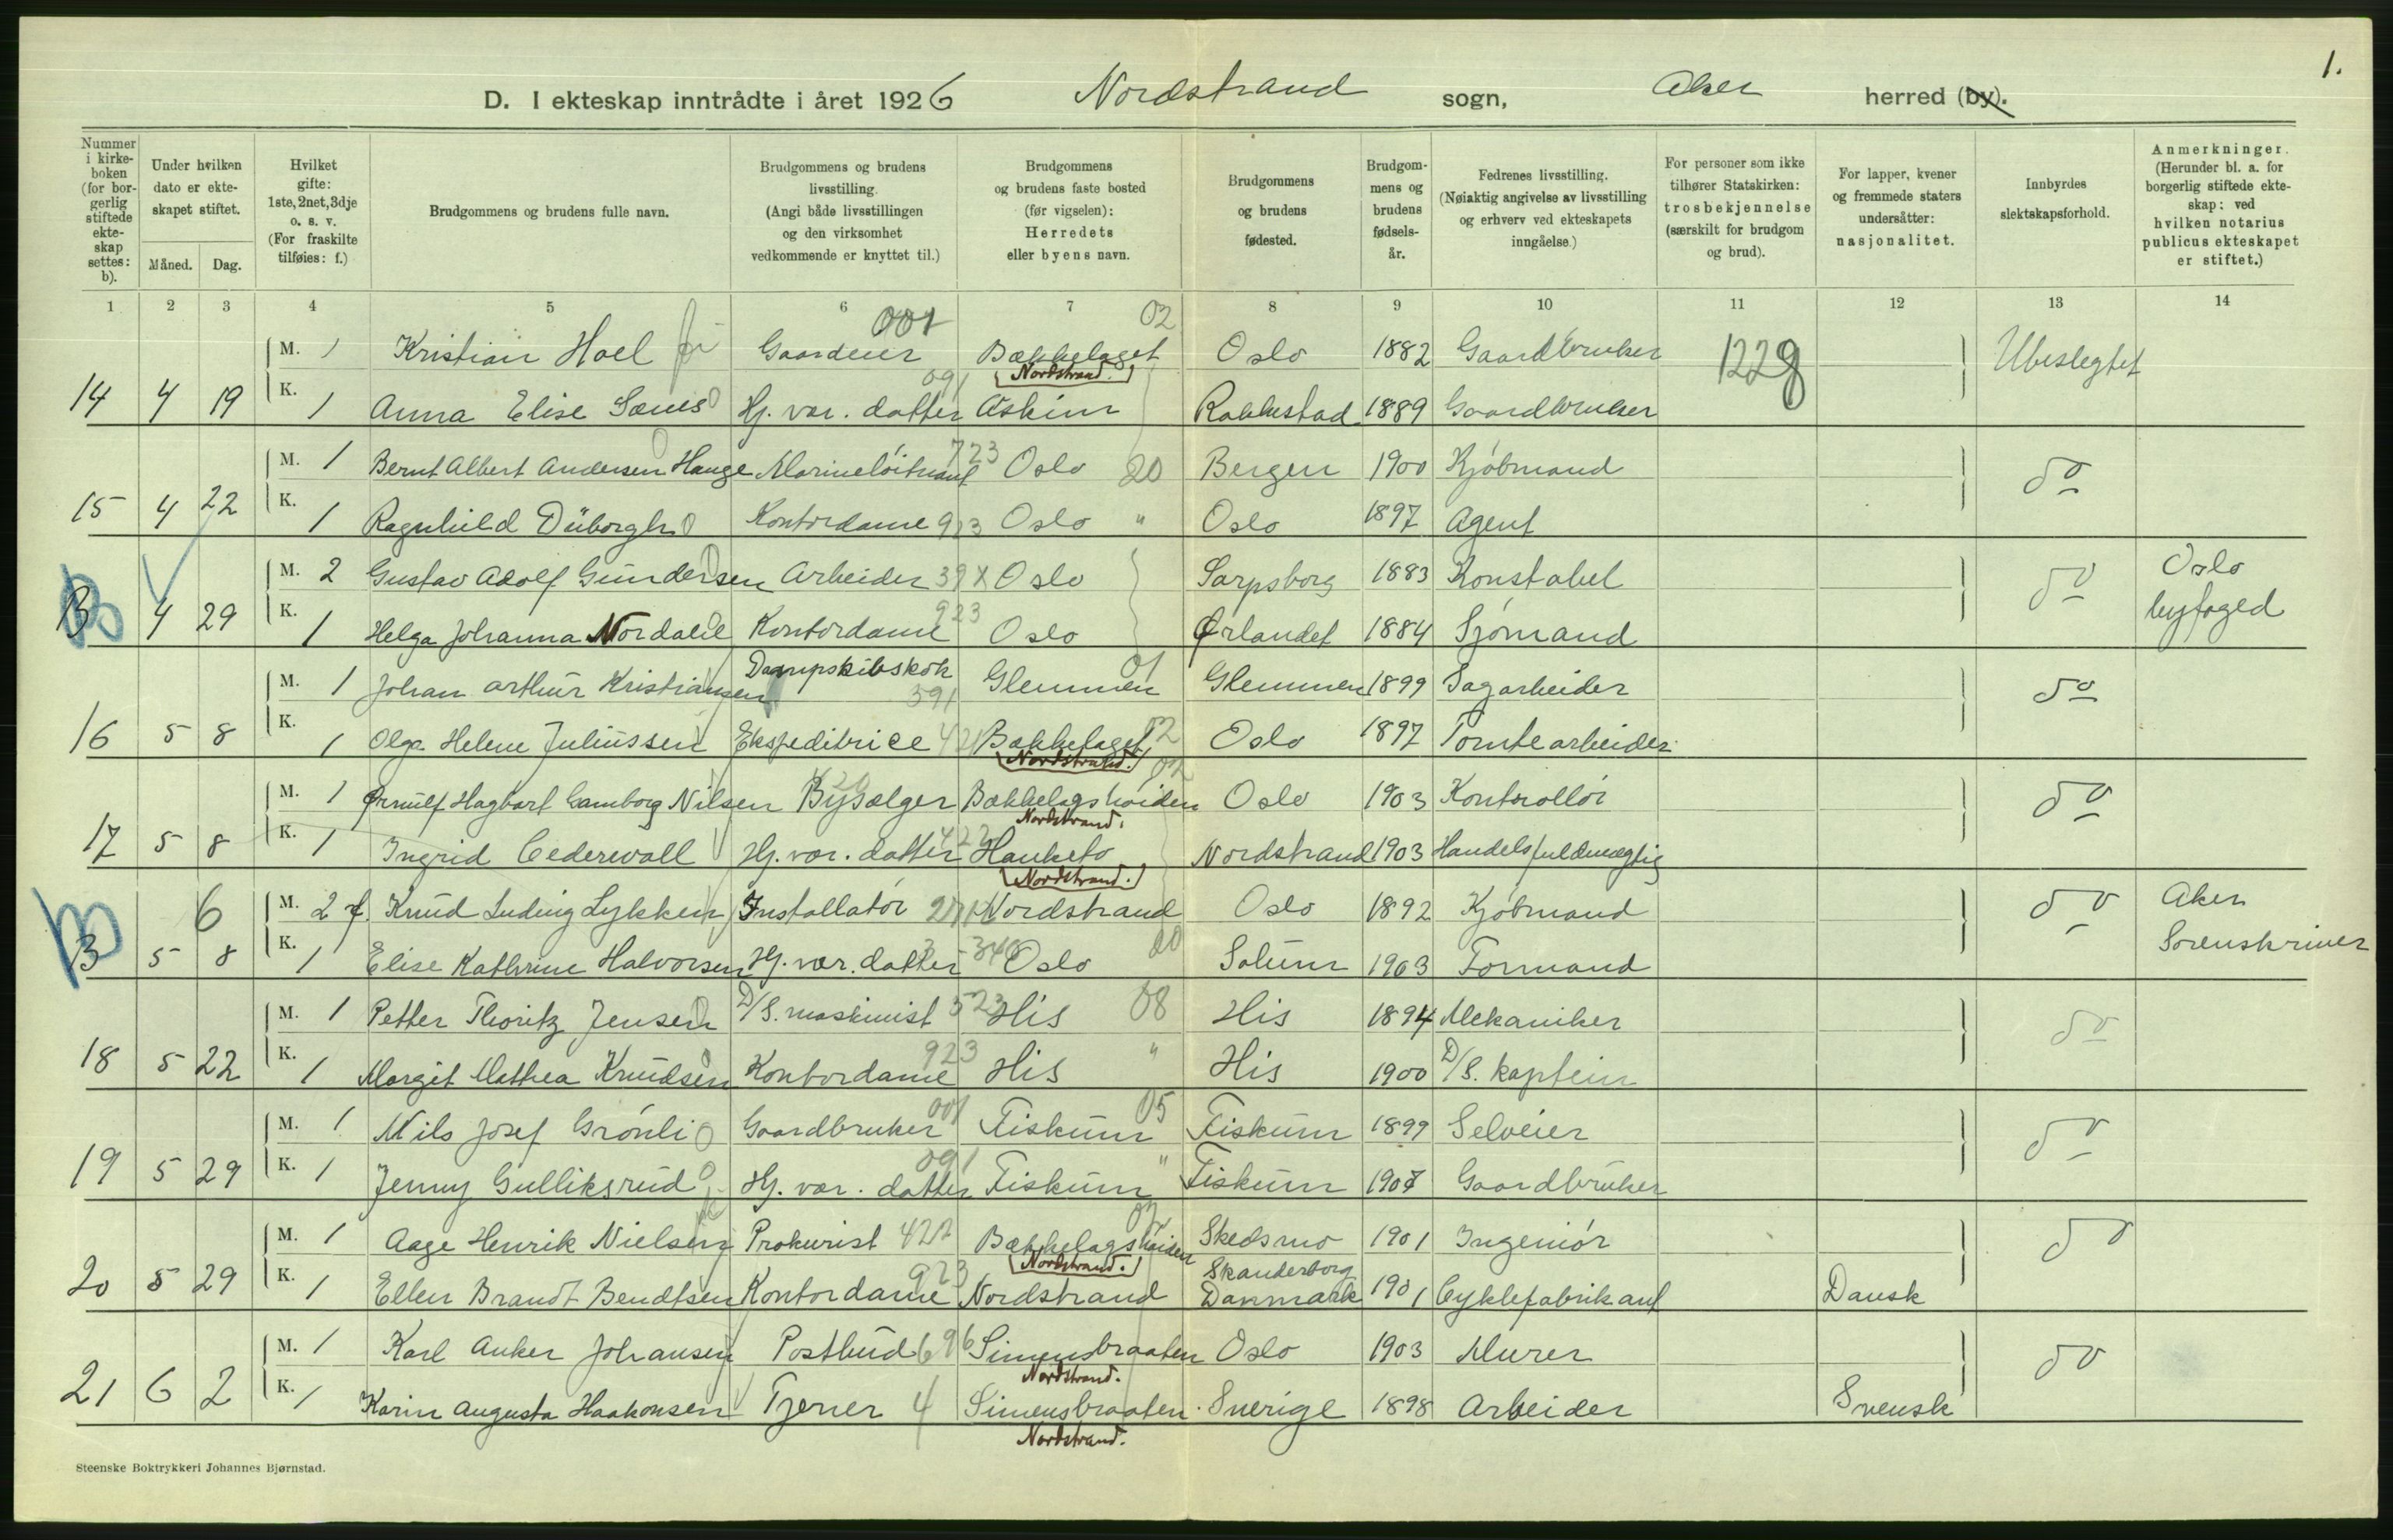 1.
D. I ekteskap inntrådte i året 1926 Nordstrand sogn, Aker herred (by).
Nummer i kirke-boken (for bor-gerlig stiftede ekte-skap settes: b).
Under hvilken dato er ekte-skapet stiftet.
Måned. Dag.
Hvilket gifte: 1ste, 2net, 3dje o. s. v. (For fraskilte tilføies: f.)
Brudgommens og brudens fulle navn.
Brudgommens og brudens livsstilling. (Angi både livsstillingen og den virksomhet vedkommende er knyttet til.)
Brudgommens og brudens faste bosted (før vigselen): Herredets eller byens navn.
Brudgommens og brudens fødested.
Brudgom-mens og brudens fødsels-år.
Fedrenes livsstilling. (Nøiaktig angivelse av livsstilling og erhverv ved ekteskapets inngåelse.)
For personer som ikke tilhører Statskirken: trosbekjennelse (særskilt for brudgom og brud).
For lapper, kvener og fremmede staters undersåtter: nasjonalitet.
Innbyrdes slektskapsforhold.
Anmerkninger. (Herunder bl. a. for borgerlig stiftede ekte-skap: ved hvilken notarius publicus ekteskapet er stiftet.)
1 2 3 4 5 6 7 8 9 10 11 12 13 14
001 02
M. 1 Kristian Hoel Gaardeier Bækkelaget Oslo 1882 Gaardbruker 1228 Ubeslegtet
091 (Nordstrand.)
14 4 19 K. 1 Anna Elise Sænes Hj. vær. datter Askim Rakkestad 1889 Gaardbruker
M. 1 Bernt Albert Andersen Hauge Marineløitnant 723 Oslo 20 Bergen 1900 Kjøbmand do
15 4 22 K. 1 Ragnhild Düborgh Kontordame 923 Oslo " Oslo 1897 Agent
M. 2 Gustav Adolf Gundersen Arbeider 39X Oslo Sarpsborg 1883 Konstabel do Oslo
B 4 29 K. 1 Helga Johanna Nordahl Kontordame 923 Oslo Ørlandet 1884 Sjømand byfoged
M. 1 Johan Arthur Kristiansen Dampskibskok 591 Glemmen 01 Glemmen 1899 Sagarbeider do
16 5 8 K. 1 Olga Helene Juliussen Ekspeditrice 421 Bækkelaget 02 Oslo 1897 Tomtearbeider
(Nordstrand.) 02
M. 1 Ørnulf Hagbart Camborg Nilsen Bysælger Bækkelagshøiden Oslo 1903 Kontrollør do
Nordstrand.
17 5 8 K. 1 Ingrid Cederwall Hj. vær. datter 422 Hauketo Nordstrand 1903 Handelsfuldmægtig
(Nordstrand.)
6 M. 2 f. Knud Ludvig Lykken Installatør Nordstrand Oslo 1892 Kjøbmand do Aker
B 5 8 K. 1 Elise Kathrine Halvorsen Hj. vær. datter Oslo 20 Solum 1903 Formand Sorenskriver
M. 1 Petter Thoritz Jensen D/S. maskinist 523 His 08 His 1894 Mekaniker do
18 5 22 K. 1 Margit Mathea Knudsen Kontordame 923 His " His 1900 D/S. kaptein
M. 1 Nils Josef Grönli Gaardbruker 001 Fiskum 05 Fiskum 1899 Selveier do
19 5 29 K. 1 Jenny Gulliksrud Hj. vær. datter 091 Fiskum " Fiskum 1907 Gaardbruker
M. 1 Aage Henrik Nielsen Prokurist 422 Bækkelagshøiden 02 Skedsmo 1901 Ingeniør do
(Nordstrand.) Skanderborg
20 5 29 K. 1 Ellen Brandt Bendtsen Kontordame 923 Nordstrand Danmark 1901 Cyklefabrikant Dansk
M. 1 Karl Anker Johansen Postbud 696 Simensbraaten Oslo 1903 Murer do
Nordstrand.
21 6 2 K. 1 Karin Augusta Haakonsen Tjener 4 Simensbraaten Sverige 1898 Arbeider Svensk
Nordstrand.
Steenske Boktrykkeri Johannes Bjørnstad.